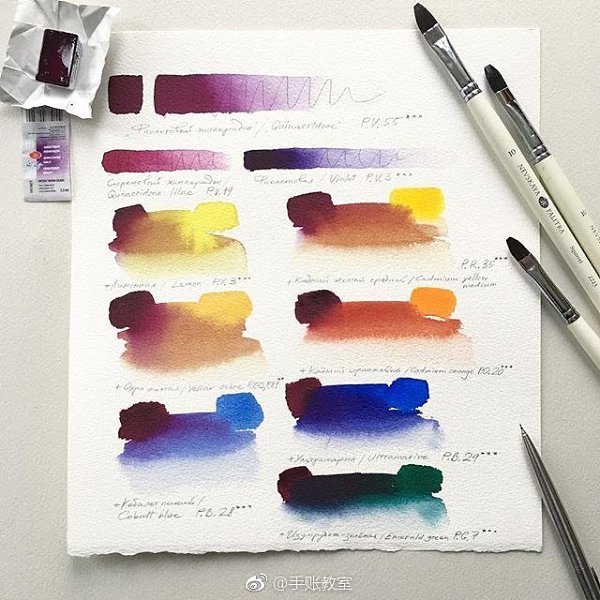 "Фиолетовый хинакридон" / Quinacridone P.V.55***
Сиреневый хинакридон
Quinacridone lilac P.V.19
Фиолетовый / Violet P.V.3***
+ Лимонная / Lemon P.Y.3***
P.R.35***
+ Кадмий желтый средний / Cadmium yellow
medium
+ Охра желтая / Yellow ochre
+ Кадмий оранжевый / Cadmium orange P.O.20***
+ Ультрамарин / Ultramarine P.B.29***
+ Кобальт синий /
Cobalt blue P.B.28***
+ Изумрудно-зелёная / Emerald green P.G.7***
10
NEVSKAYA
PALITRA
@手账教室